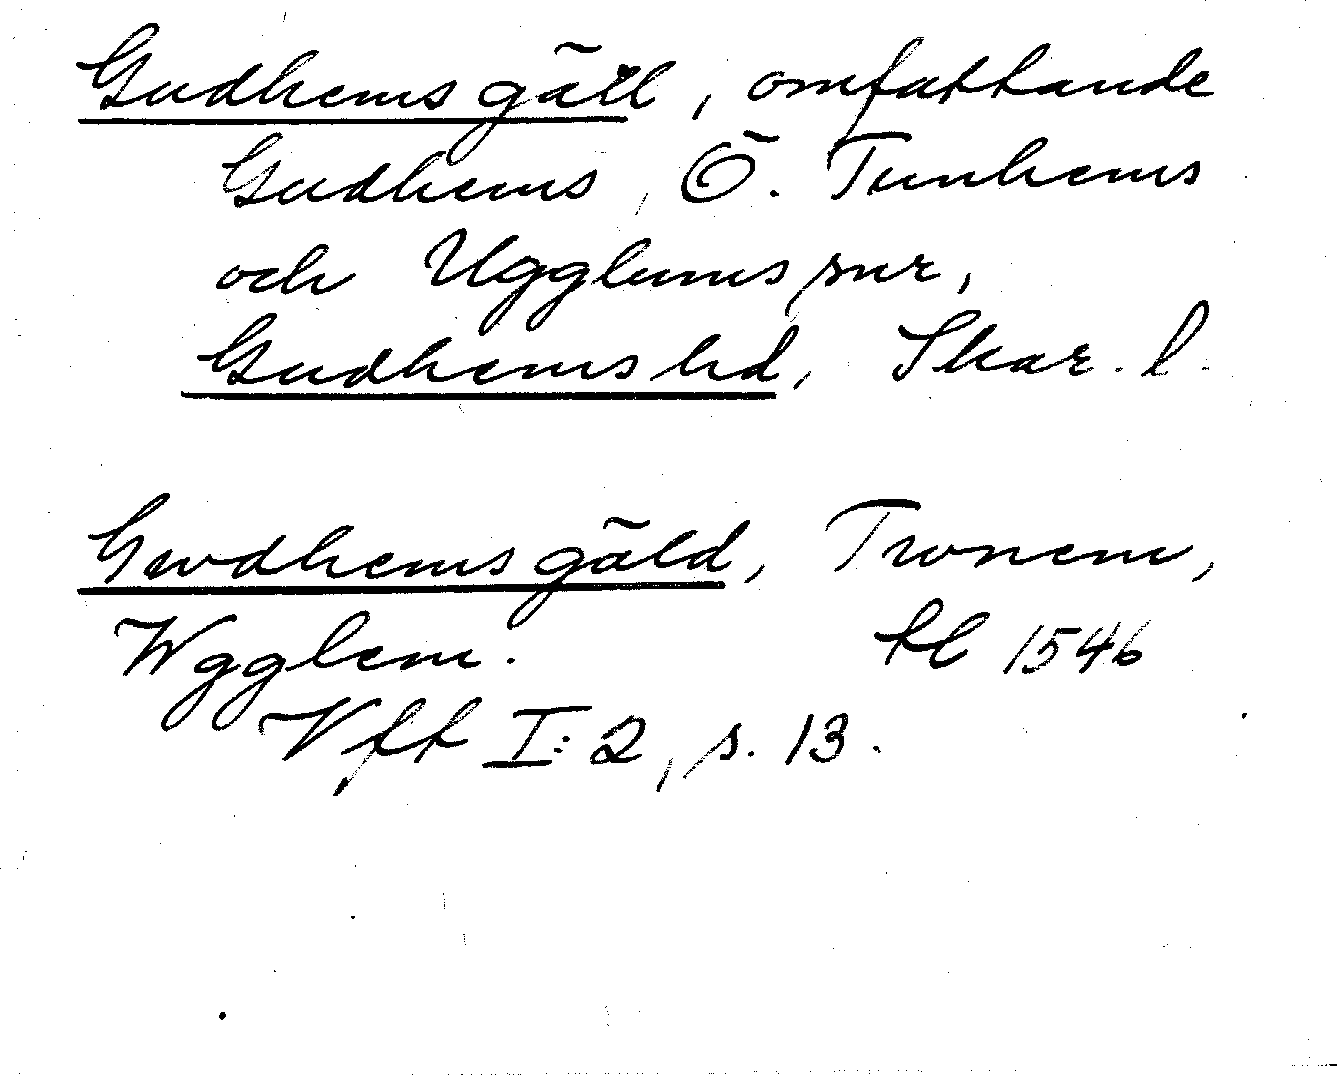 Gudhems gäll, omfattande
Gudhems, Ö. Tunhems
och Ugglums snr,
Gudhems hd, Skar. l.
Gwdhems gäld, Twnem,
Wgglem. tl 1546
Vff I:2, s. 13.